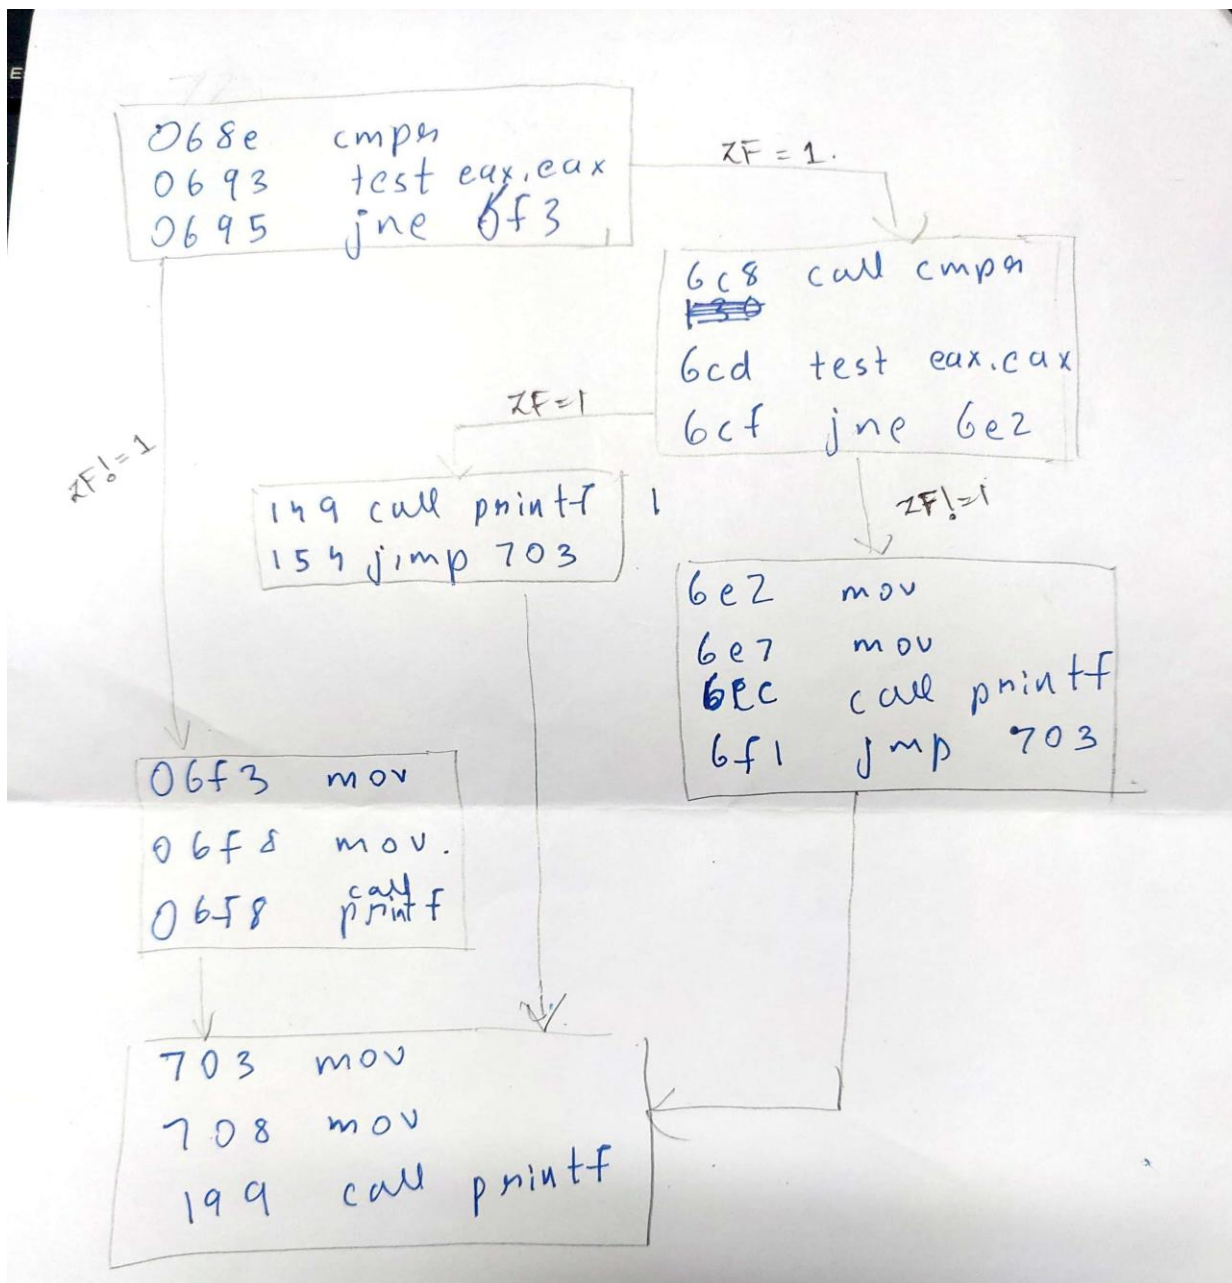 E
068e cmps
0693 test eax.eax
0695 jne 6f3
ZF = 1.
6c8 call cmps
6cd test eax.eax
6cf jne 6e2
ZF=1
ZF!=1
ZF!=1
149 call printf 1
154 jimp 703
6e2 mov
6e7 mov
6ec call printf
6f1 jmp 703
06f3 mov
06f8 mov.
06f8 call printf
703 mov
708 mov
199 call printf